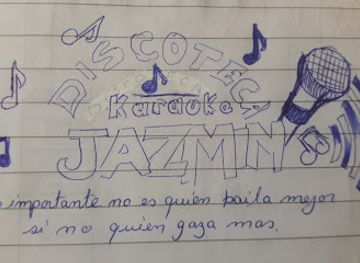 DISCOTECA
Karaoke
JAZMIN
importante no es quien baila mejor
si no quien gaza mas.